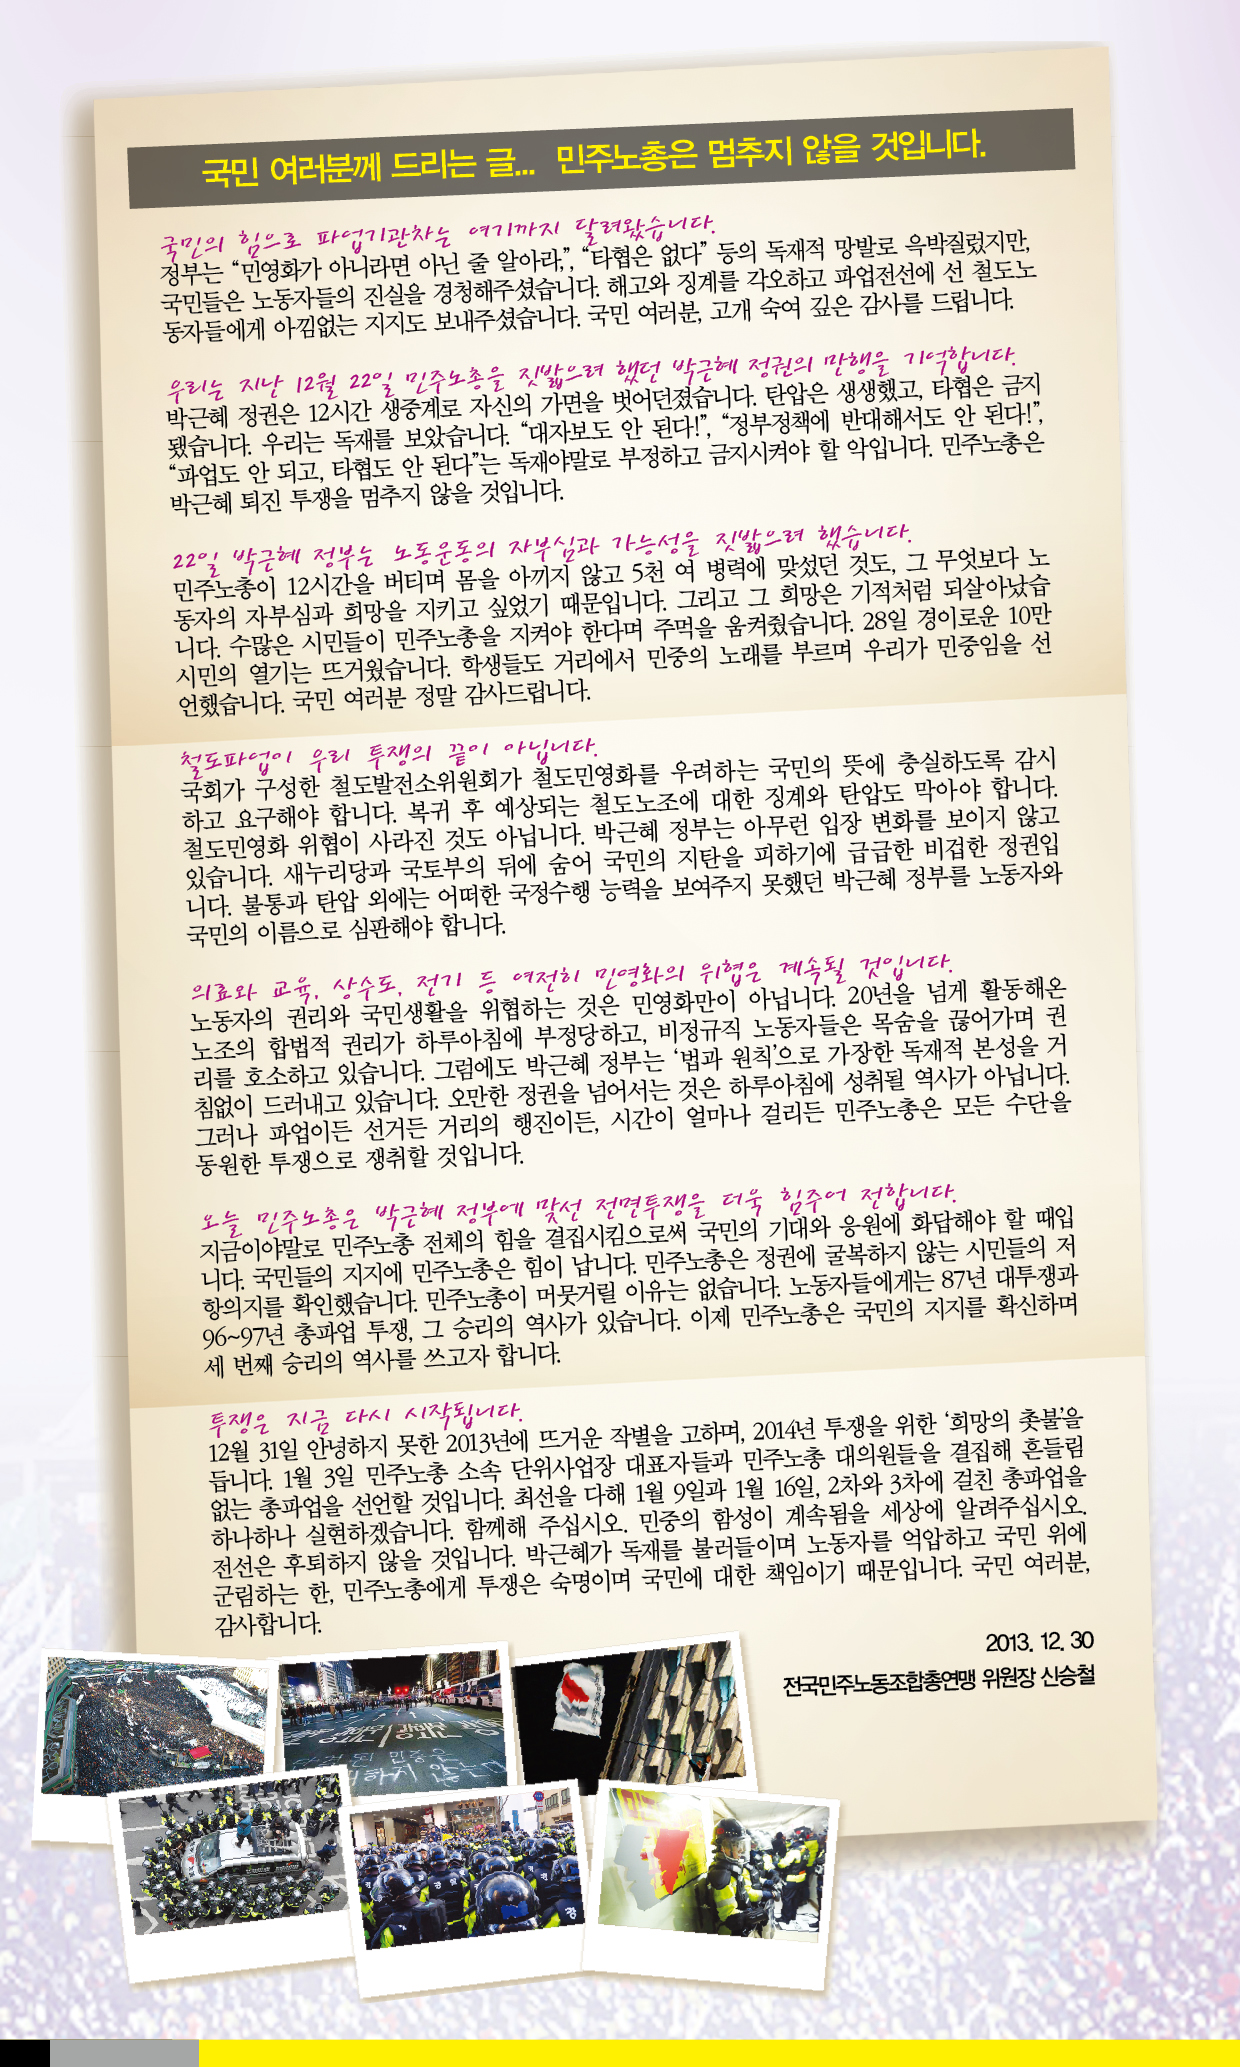 국민 여러분께 드리는 글... 민주노총은 멈추지 않을 것입니다.
국민의 힘으로 파업기관차는 여기까지 달려왔습니다.
정부는 “민영화가 아니라면 아닌 줄 알아라,”, “타협은 없다” 등의 독재적 망발로 윽박질렀지만,
국민들은 노동자들의 진실을 경청해주셨습니다. 해고와 징계를 각오하고 파업전선에 선 철도노
동자들에게 아낌없는 지지도 보내주셨습니다. 국민 여러분, 고개 숙여 깊은 감사를 드립니다.
우리는 지난 12월 22일 민주노총을 짓밟으려 했던 박근혜 정권의 만행을 기억합니다.
박근혜 정권은 12시간 생중계로 자신의 가면을 벗어던졌습니다. 탄압은 생생했고, 타협은 금지
됐습니다. 우리는 독재를 보았습니다. “대자보도 안 된다!”, “정부정책에 반대해서도 안 된다!”,
“파업도 안 되고, 타협도 안 된다”는 독재야말로 부정하고 금지시켜야 할 악입니다. 민주노총은
박근혜 퇴진 투쟁을 멈추지 않을 것입니다.
22일 박근혜 정부는 노동운동의 자부심과 가능성을 짓밟으려 했습니다.
민주노총이 12시간을 버티며 몸을 아끼지 않고 5천 여 병력에 맞섰던 것도, 그 무엇보다 노
동자의 자부심과 희망을 지키고 싶었기 때문입니다. 그리고 그 희망은 기적처럼 되살아났습
니다. 수많은 시민들이 민주노총을 지켜야 한다며 주먹을 움켜줬습니다. 28일 경이로운 10만
시민의 열기는 뜨거웠습니다. 학생들도 거리에서 민중의 노래를 부르며 우리가 민중임을 선
언했습니다. 국민 여러분 정말 감사드립니다.
철도파업이 우리 투쟁의 끝이 아닙니다.
국회가 구성한 철도발전소위원회가 철도민영화를 우려하는 국민의 뜻에 충실하도록 감시
하고 요구해야 합니다. 복귀 후 예상되는 철도노조에 대한 징계와 탄압도 막아야 합니다.
철도민영화 위협이 사라진 것도 아닙니다. 박근혜 정부는 아무런 입장 변화를 보이지 않고
있습니다. 새누리당과 국토부의 뒤에 숨어 국민의 지탄을 피하기에 급급한 비겁한 정권입
니다. 불통과 탄압 외에는 어떠한 국정수행 능력을 보여주지 못했던 박근혜 정부를 노동자와
국민의 이름으로 심판해야 합니다.
의료와 교육, 상수도, 전기 등 여전히 민영화의 위협은 계속될 것입니다.
노동자의 권리와 국민생활을 위협하는 것은 민영화만이 아닙니다. 20년을 넘게 활동해온
노조의 합법적 권리가 하루아침에 부정당하고, 비정규직 노동자들은 목숨을 끊어가며 권
리를 호소하고 있습니다. 그럼에도 박근혜 정부는 ‘법과 원칙’으로 가장한 독재적 본성을 거
침없이 드러내고 있습니다. 오만한 정권을 넘어서는 것은 하루아침에 성취될 역사가 아닙니다.
그러나 파업이든 선거든 거리의 행진이든, 시간이 얼마나 걸리든 민주노총은 모든 수단을
동원한 투쟁으로 쟁취할 것입니다.
오늘 민주노총은 박근혜 정부에 맞선 전면투쟁을 더욱 힘주어 전합니다.
지금이야말로 민주노총 전체의 힘을 결집시킴으로써 국민의 기대와 응원에 화답해야 할 때입
니다. 국민들의 지지에 민주노총은 힘이 납니다. 민주노총은 정권에 굴복하지 않는 시민들의 저
항의지를 확인했습니다. 민주노총이 머뭇거릴 이유는 없습니다. 노동자들에게는 87년 대투쟁과
96~97년 총파업 투쟁, 그 승리의 역사가 있습니다. 이제 민주노총은 국민의 지지를 확신하며
세 번째 승리의 역사를 쓰고자 합니다.
투쟁은 지금 다시 시작됩니다.
12월 31일 안녕하지 못한 2013년에 뜨거운 작별을 고하며, 2014년 투쟁을 위한 ‘희망의 촛불’을
듭니다. 1월 3일 민주노총 소속 단위사업장 대표자들과 민주노총 대의원들을 결집해 흔들림
없는 총파업을 선언할 것입니다. 최선을 다해 1월 9일과 1월 16일, 2차와 3차에 걸친 총파업을
하나하나 실현하겠습니다. 함께해 주십시오. 민중의 함성이 계속됨을 세상에 알려주십시오.
전선은 후퇴하지 않을 것입니다. 박근혜가 독재를 불러들이며 노동자를 억압하고 국민 위에
군림하는 한, 민주노총에게 투쟁은 숙명이며 국민에 대한 책임이기 때문입니다. 국민 여러분,
감사합니다.
2013. 12. 30
전국민주노동조합총연맹 위원장 신승철